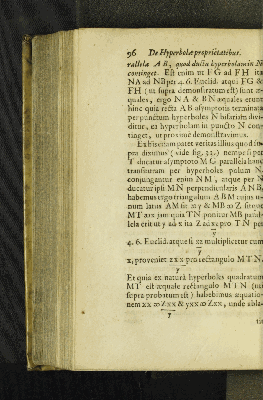 96 De Hyperbolæ proprietatibus.
rallelæ A B, quod ducta hyperbolam in N
continget. Est enim ut FG ad FH ita
NA ad NB per 4. 6. Euclid. atqui FG &
FH (ut supra demonstratum est) sunt æ-
quales, ergo NA & BN æquales erunt
hinc quia recta AB asymptotis terminata
per punctum hyperboles N bifariam divi-
ditur, ea hyperbolam in puncto N con-
tanget, ut proximè demonstravimus.
Ex his etiam patet veritas illius quod su-
pra diximus (vide fig. 33.) nempe si per
T ducatur asymptoto MG parallela hanc
transituram per hyperboles polum N,
conjungantur enim NM, atque per N
ducatur ipsi MN perpendicularis ANB,
habemus ergo triangulum ABM cujus u-
num latus AM sit
MT zxx jam quia TN ponitur MB paral-
lela erit ut y ad x ita Z ad xz pro TN per
y
4. 6. Euclid. atque si xz multiplicetur cum
y
x, proveniet zxx pro rectangulo MTN,
y
Et quia ex naturâ hyperboles quadratum
MT est æquale rectangulo MTN (ut
supra probatum est) habebimus æquatio-
nem xx ∞ Zxx & yxx ∞ Zxx, unde abla-
y